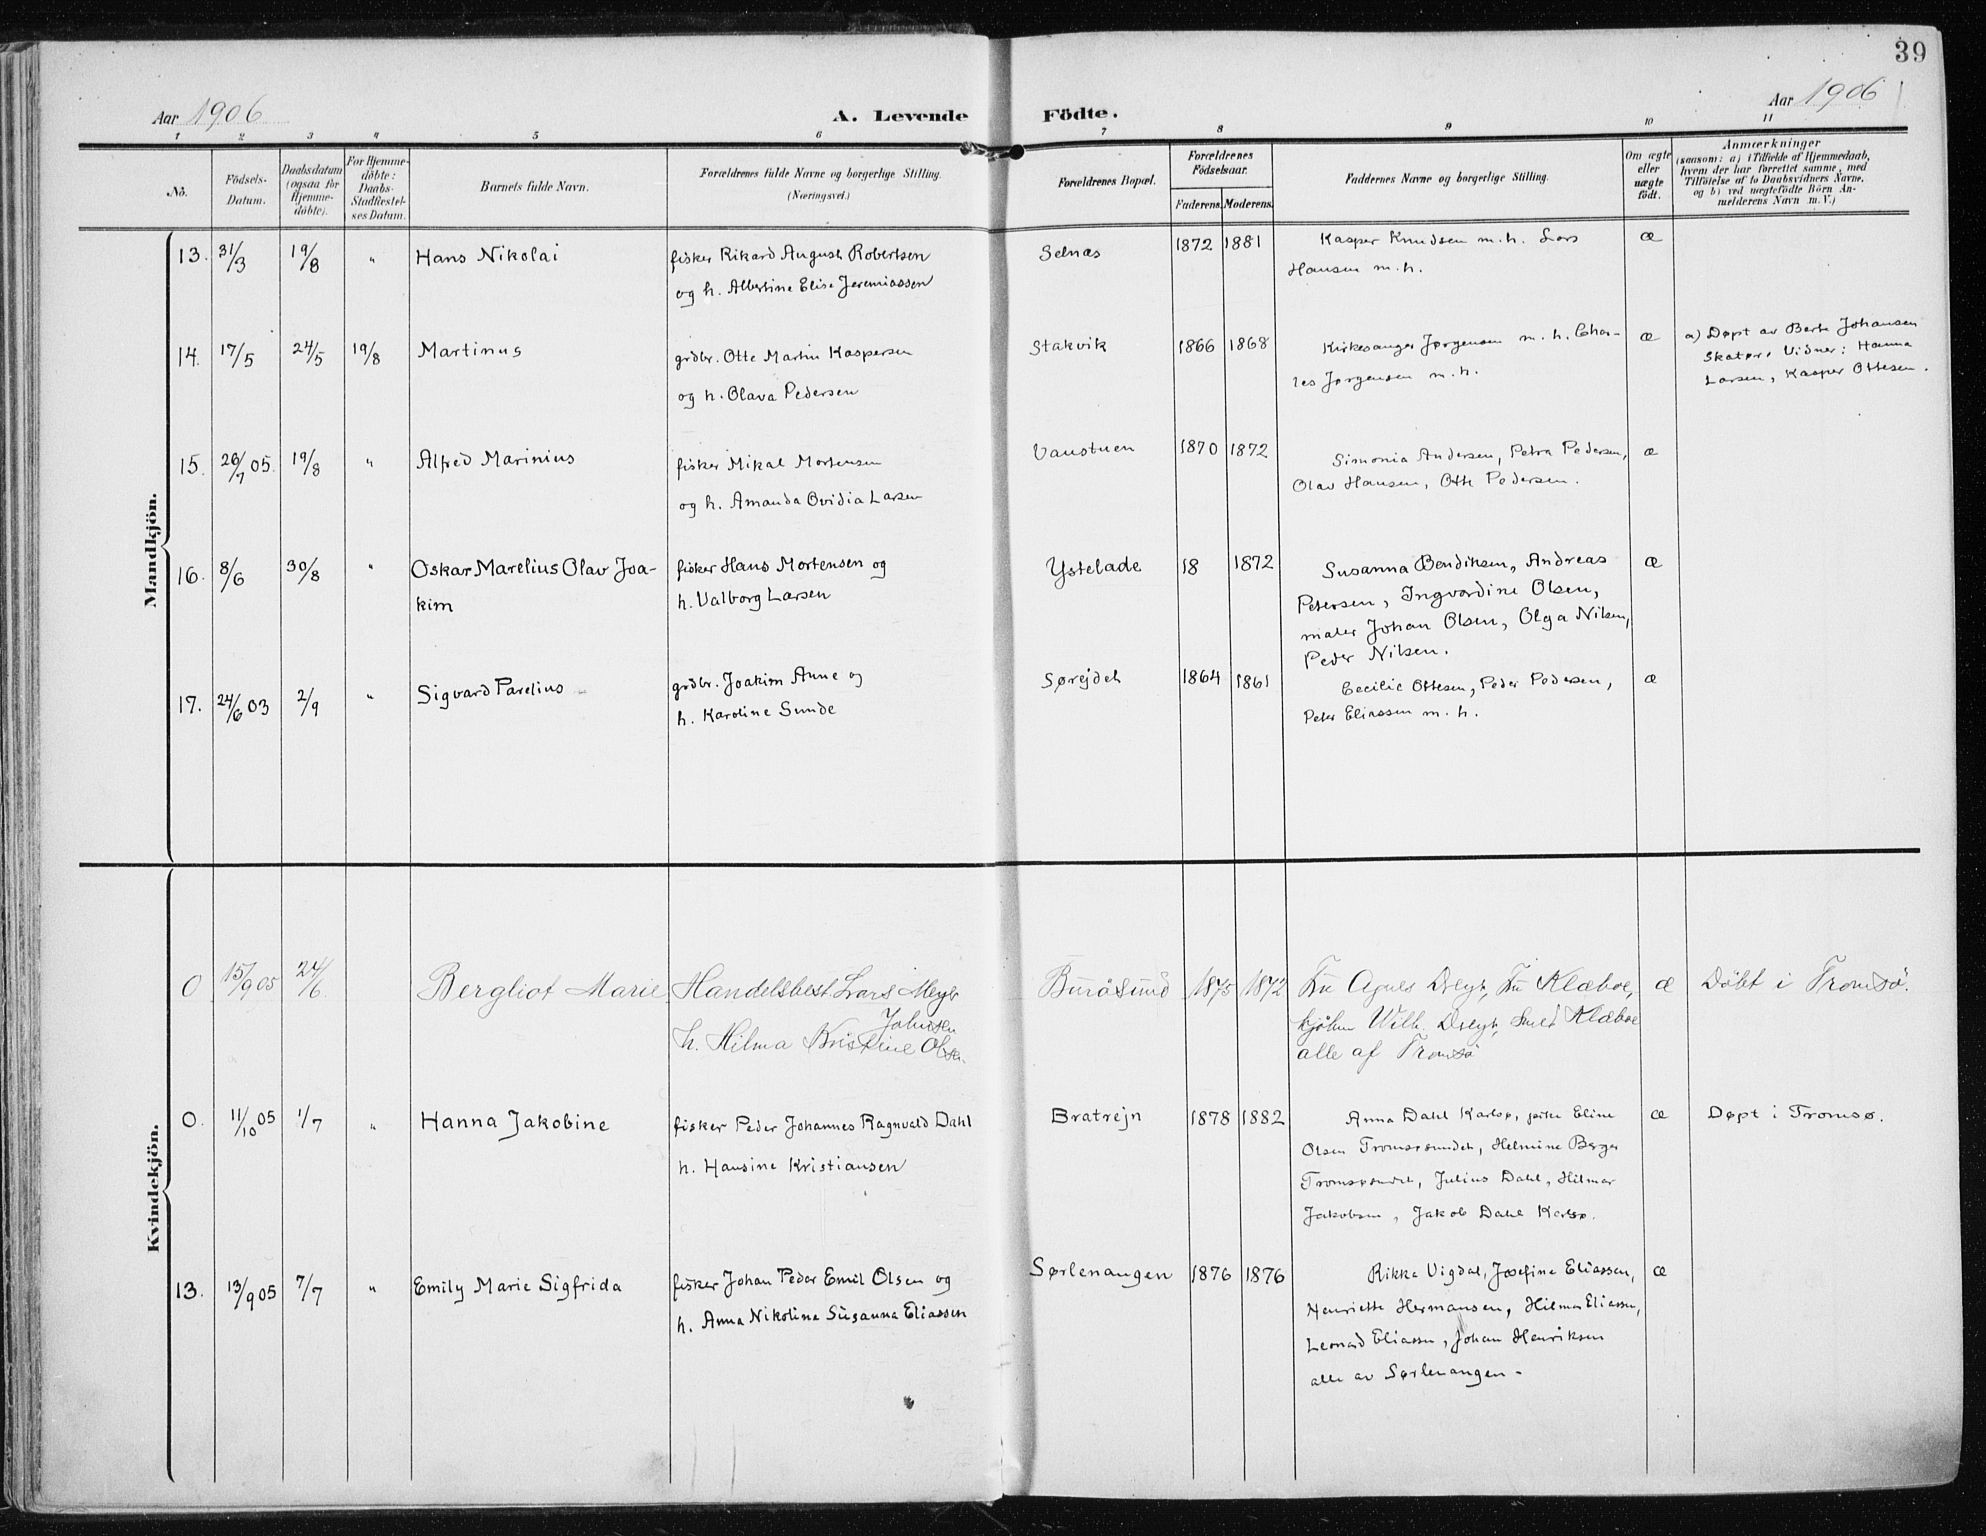 39
Aar 1906
A. Levende Födte.
Aar 1906
1 2 3 4 5 6 7 8 9 10 11
No.
Födsels-
Datum.
Daabsdatum
(ogsaa for
Hjemme-
döbte).
For Hjemme-
döbte:
Daabs-
Stadfæstel-
ses Datum.
Barnets fulde Navn.
Forældrenes fulde Navne og borgerlige Stilling.
(Næringsvei.)
Forældrenes Bopæl.
Forældrenes
Födselsaar.
Faderens. Moderens.
Faddernes Navne og borgerlige Stilling.
Om ægte
eller
uægte
födt.
Anmærkninger
(saasom: a) i Tilfælde af Hjemmedaab,
hvem der har forrettet samme, med
Tilföielse af to Daabsvidners Navne,
og b) ved uægtefödte Börn An-
melderens Navn m. V.)
Mandkjön.
13. 31/3 19/8 " Hans Nikolai
fisker Rikard August Robertsen
og h. Albertine Elise Jeremiassen
Selnæs 1872 1881
Kasper Knudsen m. h. Lars
Hansen m. h.
æ
14. 17/5 24/5 19/8 Martinus
grdbr. Otte Martin Kaspersen
og h. Olava Pedersen
Stakvik 1866 1868
Kirkesanger Jørgensen m. h. Char-
les Jørgensen m. h.
æ
a) Døpt av Berte Johansen
Skatør. Vidner: Hanna
Larsen, Kasper Ottesen.
15. 26/7 05. 19/8 " Alfred Marinius
fisker Mikal Mortensen
og h. Amanda Ovidia Larsen
Vanstuen 1870 1872
Simonia Andersen, Petra Pedersen,
Olav Hansen, Otte Pedersen.
æ
16. 8/6 30/8 " Oskar Marelius Olav Joa-
kim
fisker Hans Mortensen og
h. Valborg Larsen
Ystelade 18 1872
Susanna Bendiksen, Andreas
Petersen, Ingvardine Olsen,
maler Johan Olsen, Olga Nilsen,
Peder Nilsen.
æ
17. 24/6 03 2/9 " Sigvard Parelius
grdbr. Joakim Anne og
h. Karoline Sunde
Sørejdet 1864 1861
Cecilie Ottesen, Peder Pedersen,
Peter Eliassen m. h.
æ
Kvindekjön.
0 15/9 05 24/6. Bergliot Marie
Handelsbest. Lars Meyer
Johnsen
h. Hilma Kristine Olsen.
Buröisund 1875 1872
Fru Agnes Dreyer, Fru Klæboe,
kjøbm Wilh. Dreyer, Klæboe
alle af Tromsö
æ
Döbt i Tromsö.
0. 11/10 05 1/7 " Hanna Jakobine
fisker Peder Johannes Ragnvald Dahl
h. Hansine Kristiansen
Bratrejn 1878 1882
Anna Dahl Karlsø, pike Eline
Olsen Tromsøsundet, Helmine Berger
Tromsøsundet, Julius Dahl, Hilmar
Jakobsen, Jakob Dahl Karlsø.
æ
Døpt i Tromsø.
13. 13/9 05 7/7 " Emily Marie Sigfrida
fisker Johan Peder Emil Olsen og
h. Anna Nikoline Susanna Eliassen
Sørlenangen 1876 1876
Rikka Vigdal, Josefine Eliassen,
Henriette Hermansen, Hilmar Eliassen,
Leonard Eliassen, Johan Henriksen
alle av Sørlenangen -
æ